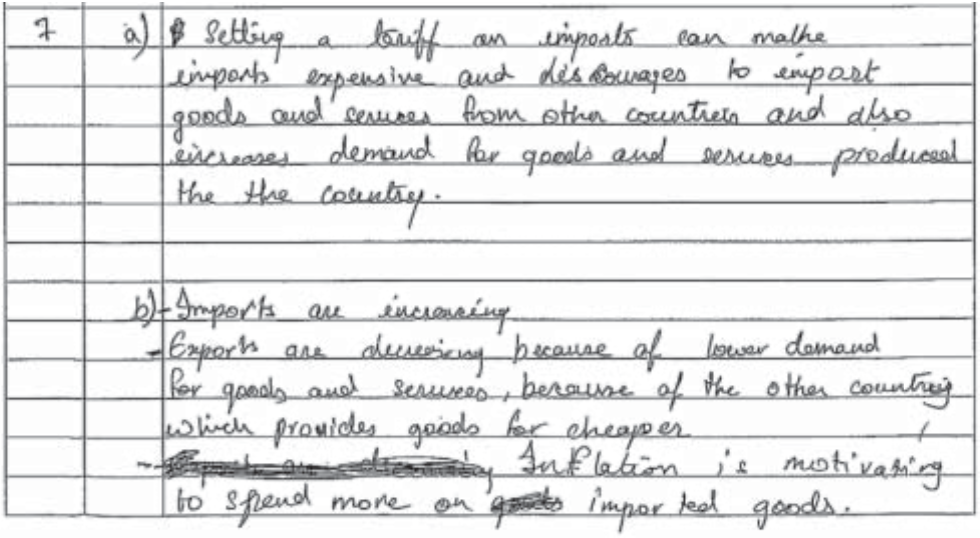 7 a) Setting a tariff on imports can mathe
imports expensive and discourages to import
goods and services from other countreis and also
increases demand for goods and services produced
the the country.
b) - Imports are increasing
- Exports are decreasing because of lower demand
for goods and services, because of the other countries
which provides goods for cheaper
- Inflation is motivating
to spend more on imported goods.